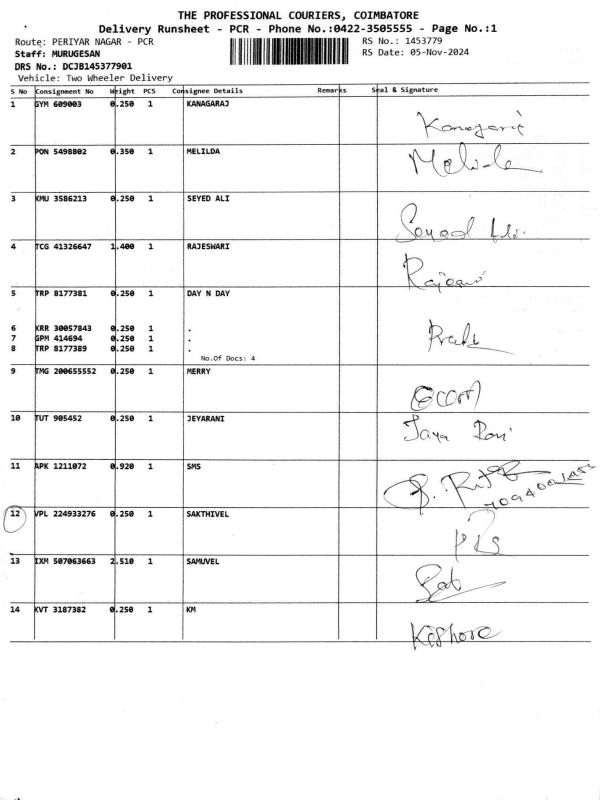 THE PROFESSIONAL COURIERS, COIMBATORE
Delivery Runsheet - PCR - Phone No.:0422-3505555 - Page No.:1
Route: PERIYAR NAGAR - PCR RS No.: 1453779
Staff: MURUGESAN RS Date: 05-Nov-2024
DRS No.: DCJB145377901
Vehicle: Two Wheeler Delivery
S No Consignment No Weight PCS Consignee Details Remarks Seal & Signature
1 GYM 609003 0.250 1 KANAGARAJ
Kanagaraj
2 PON 5498802 0.350 1 MELILDA
3 KMU 3586213 0.250 1 SEYED ALI
Seyed Ali
4 TCG 41326647 1.400 1 RAJESWARI
5 TRP 8177381 0.250 1 DAY N DAY
6 KRR 30057843 0.250 1 .
7 GPM 414694 0.250 1 .
8 TRP 8177389 0.250 1 .
No.Of Docs: 4
9 TMG 200655552 0.250 1 MERRY
10 TUT 905452 0.250 1 JEYARANI
Jaya Rani
11 APK 1211072 0.920 1 SMS
12 VPL 224933276 0.250 1 SAKTHIVEL
13 IXM 507063663 2.510 1 SAMUVEL
14 KVT 3187382 0.250 1 KM
Kishore